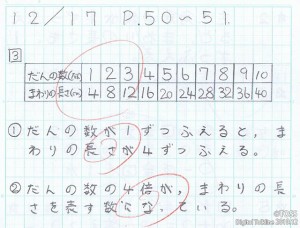 12/17 P.50〜51
3
だんの数(だん) 1 2 3 4 5 6 7 8 9 10
まわりの長さ(cm) 4 8 12 16 20 24 28 32 36 40
①だんの数が1ずつふえると、ま
わりの長さが4ずつふえる。
②だんの数の4倍が、まわりの長
さを表す数になっている。
©TOSS
Digital Talkline